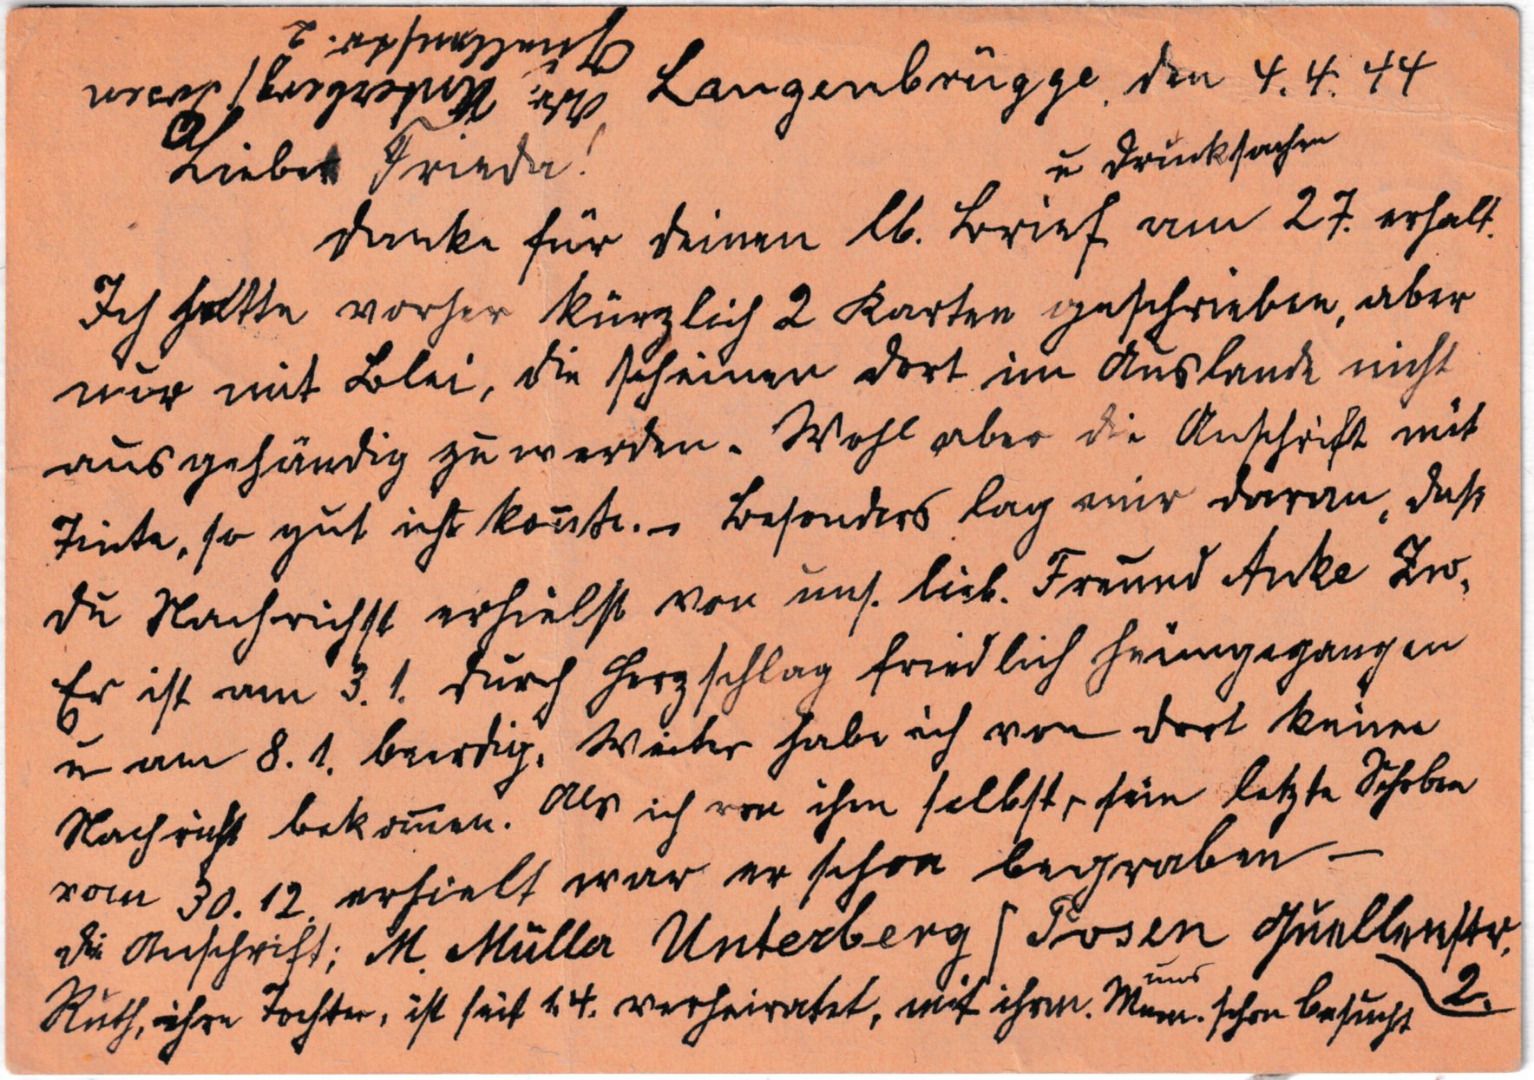 Langenbrügge, den 4.4.44
Liebe Frieda!
u Drucksachen
Danke für deinen lb. Brief am 27. erhalt.
Ich hatte vorher kürzlich 2 Karten geschrieben, aber
nur mit Blei, die scheinen dort im Auslande nicht
ausgehändig zu werden. Wohl aber die Anschrift mit
Tinte, so gut ich konnte. – Besonders lag mir daran, daß
du Nachricht erhielst von uns. lieb. Freund Anke Zw.
Er ist am 3.1. durch Herzschlag friedlich heimgegangen
u am 8.1. beerdig. Weiter habe ich von dort keine
Nachricht bekom̅en. Als ich von ihm selbst, sein letzte Schrben
vom 30.12. erhielt war er schon begraben –
die Anschrift; M. Müller Unterberg / Posen Quellenstr.
2.
uns
Ruth, ihre Tochter, ist seit 1.4. verheiratet, mit ihrm. Mann. schon besucht
Unterberg / Posen
Quellenstr. 2.